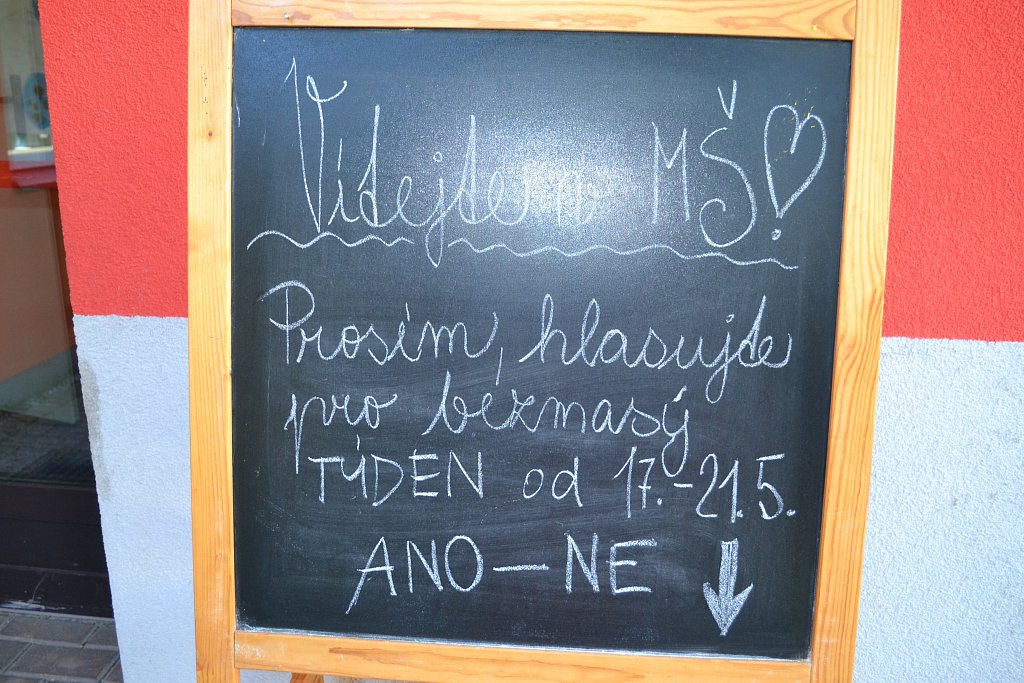 Vítejte v MŠ
Prosím, hlasujte
pro bezmasý
TÝDEN od 17.-21.5.
ANO-NE